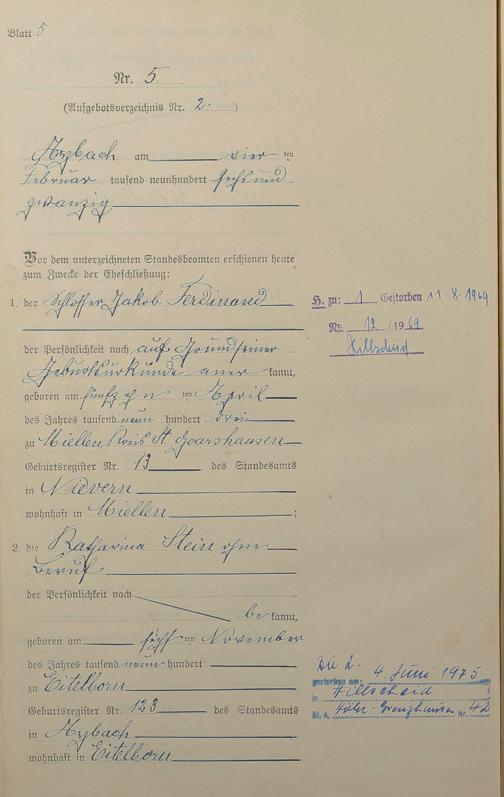 Blatt 5
Nr. 5.
(Aufgebotsverzeichnis Nr. 2. )
Arzbach am vier ten
Februar tausend neunhundert sechs und
zwanzig
Vor dem unterzeichneten Standesbeamten erschienen heute
zum Zwecke der Eheschließung:
1. der Schlosser Jakob Ferdinand
der Persönlichkeit nach auf Grund seiner
Geburtsurkunde aner kannt,
geboren am fünfzehn ten April
des Jahres tausend neun hundert drei
zu Miellen, Kreis St Goarshausen
Geburtsregister Nr. 13 des Standesamts
in Nievern
wohnhaft in Miellen ;
2. die Katharina Stein ohne
Beruf
der Persönlichkeit nach
be kannt,
geboren am sechs ten November
des Jahres tausend neun hundert
zu Eitelborn
Geburtsregister Nr. 123 des Standesamts
in Arzbach
wohnhaft in Eitelborn
H. zu: 1 Gestorben 11.8.1969
Nr. 12 / 1969
Hillscheid
Zu 2.
gestorben am: 4. Juni 1975
in Hillscheid
St. A. Höhr-Grenzhausen Nr. 42